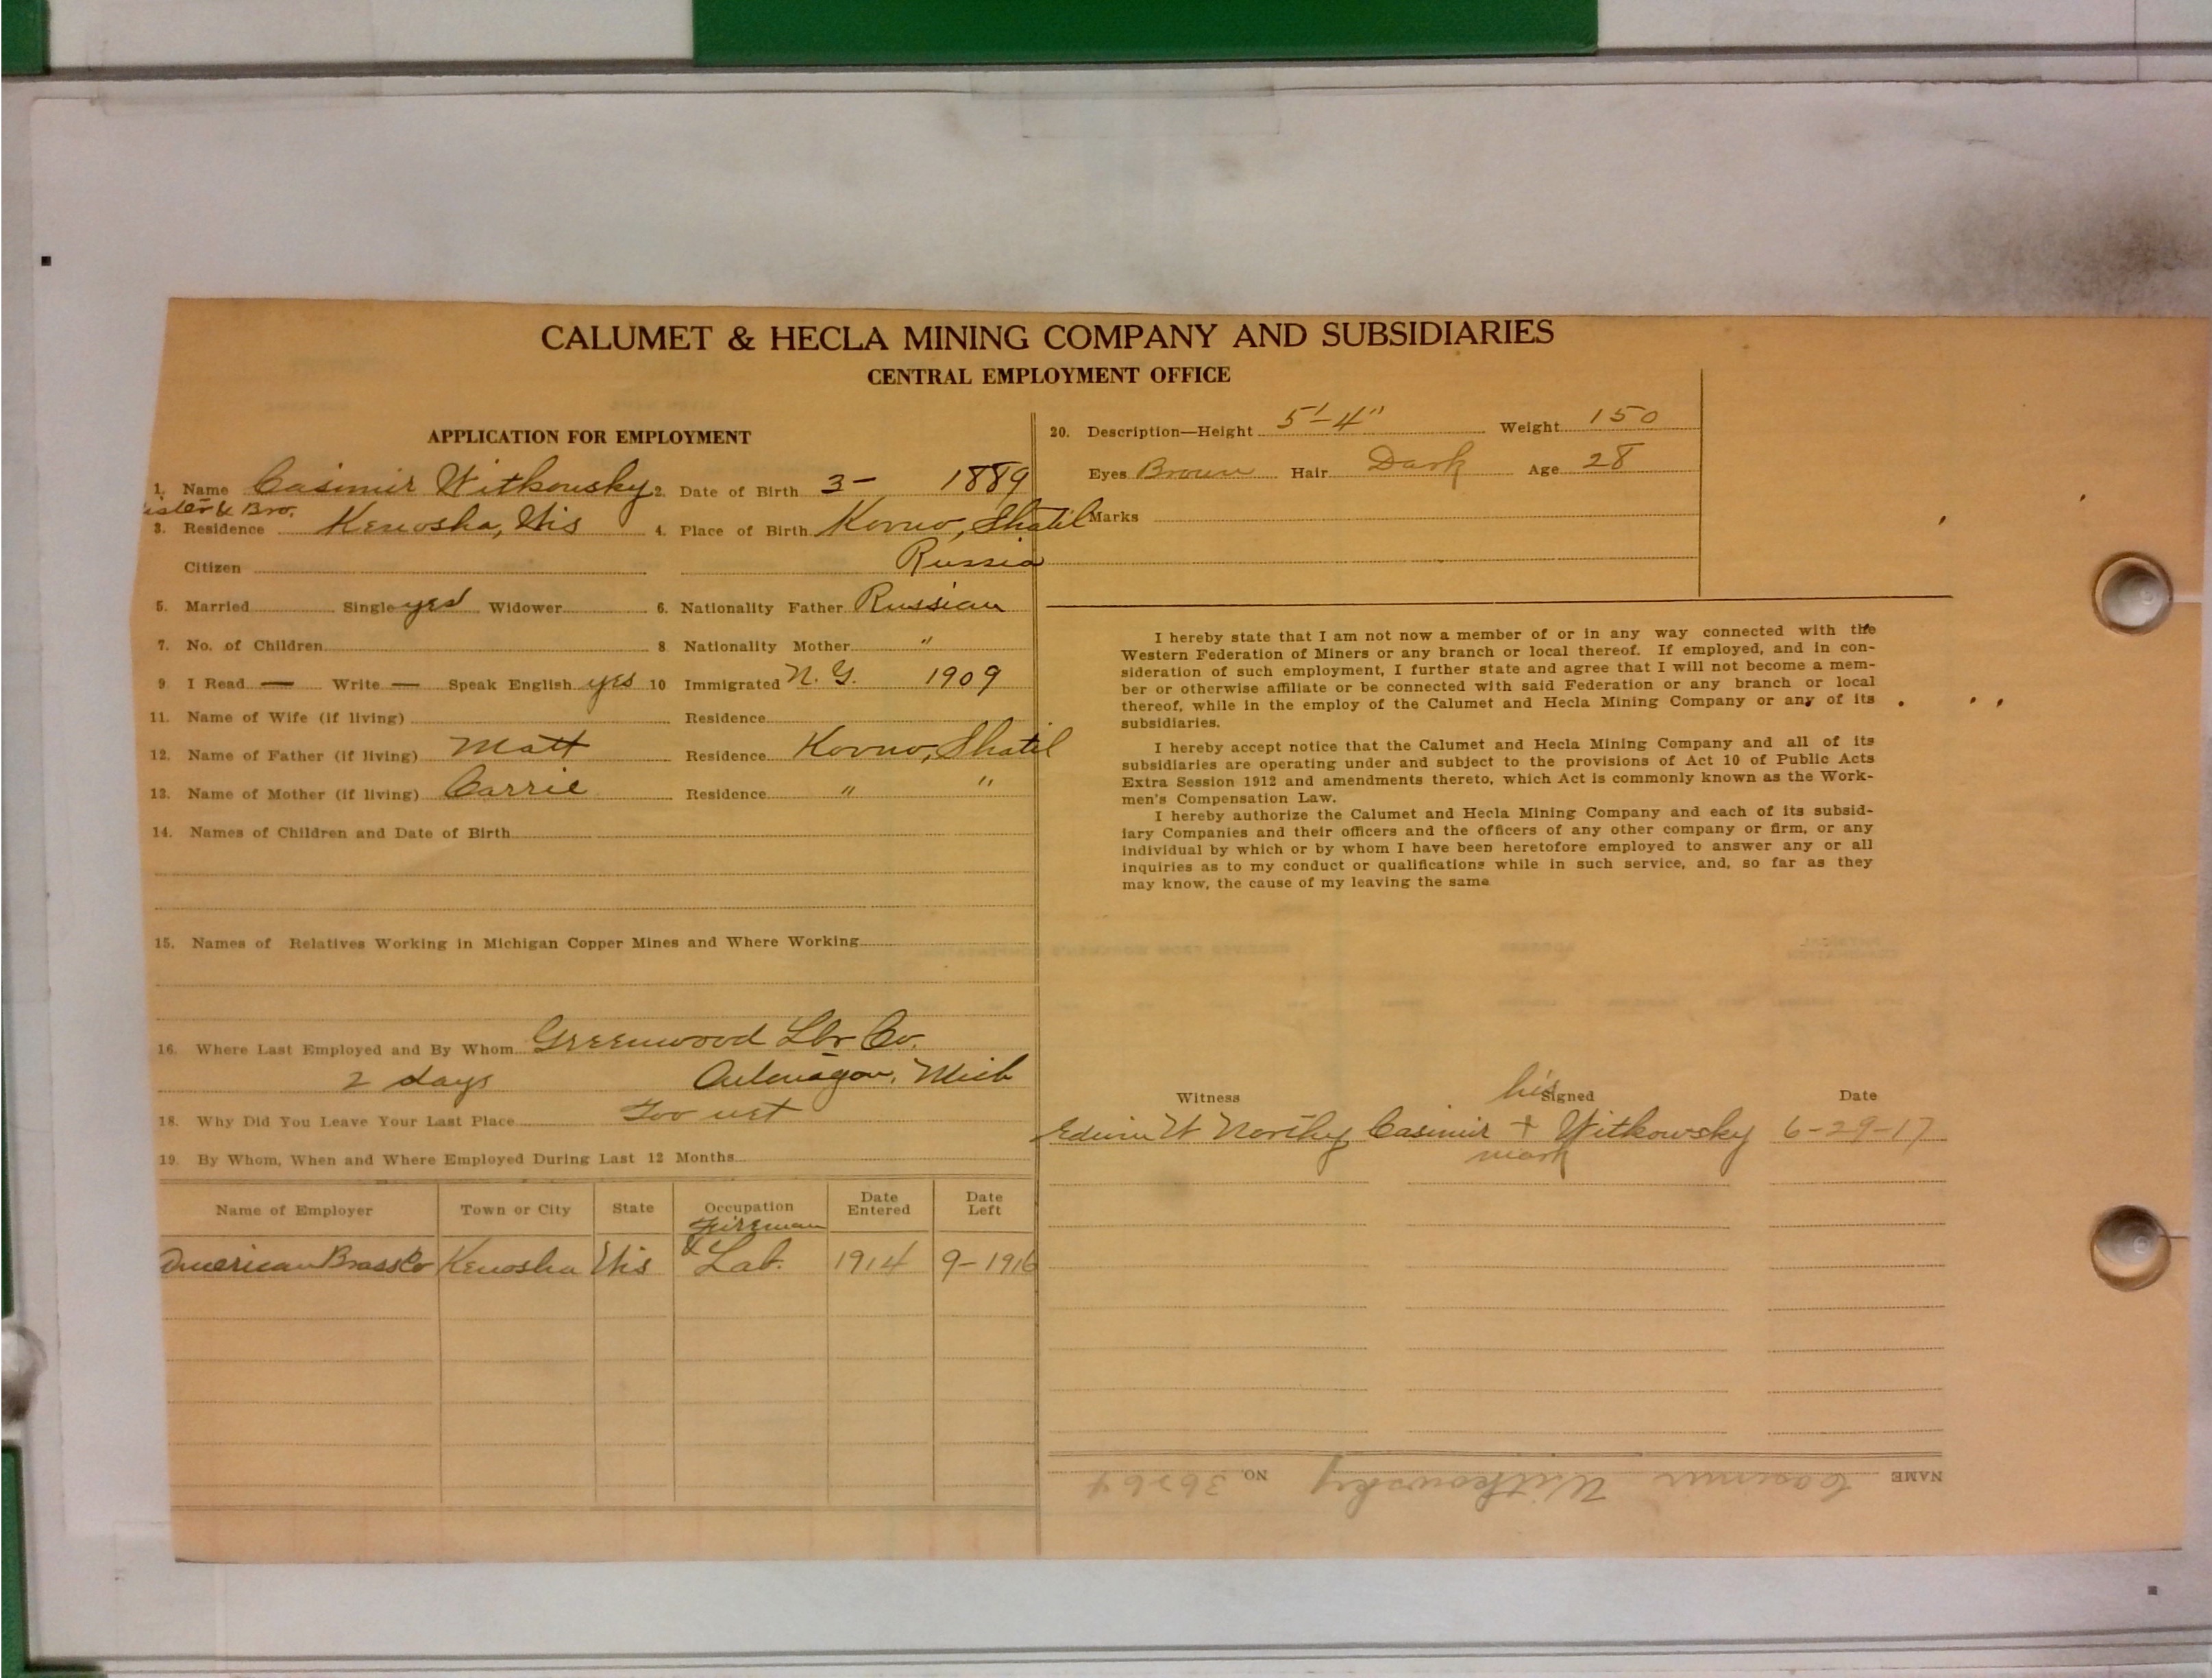 CALUMET & HECLA MINING COMPANY AND SUBSIDIARIES
CENTRAL EMPLOYMENT OFFICE
APPLICATION FOR EMPLOYMENT
1. Name Casimir Witkowsky 2. Date of Birth 3- 1889
ister & Bro.
3. Residence Kenosha, Wis 4. Place of Birth Kovno, Shatil
Citizen Russia
5. Married Single yes Widower 6. Nationality Father Russian
7. No. of Children 8 Nationality Mother "
9. I Read — Write — Speak English yes 10 Immigrated N. Y. 1909
11. Name of Wife (if living) Residence
12. Name of Father (if living) Matt Residence Kovno, Shatil
13. Name of Mother (if living) Carrie Residence " "
14. Names of Children and Date of Birth
15. Names of Relatives Working in Michigan Copper Mines and Where Working
16. Where Last Employed and By Whom Greenwood Lbr Co.
2 days Mich
18. Why Did You Leave Your Last Place Too wet
19. By Whom, When and Where Employed During Last 12 Months
Name of Employer Town or City State Occupation Date Entered Date Left
Fireman
American Brass Co Kenosha Wis & Lab. 1914 9-1916
20. Description—Height 5'-4" Weight 150
Eyes Brown Hair Dark Age 28
Marks
I hereby state that I am not now a member of or in any way connected with the
Western Federation of Miners or any branch or local thereof. If employed, and in con-
sideration of such employment, I further state and agree that I will not become a mem-
ber or otherwise affiliate or be connected with said Federation or any branch or local
thereof, while in the employ of the Calumet and Hecla Mining Company or any of its
subsidiaries.
I hereby accept notice that the Calumet and Hecla Mining Company and all of its
subsidiaries are operating under and subject to the provisions of Act 10 of Public Acts
Extra Session 1912 and amendments thereto, which Act is commonly known as the Work-
men's Compensation Law.
I hereby authorize the Calumet and Hecla Mining Company and each of its subsid-
iary Companies and their officers and the officers of any other company or firm, or any
individual by which or by whom I have been heretofore employed to answer any or all
inquiries as to my conduct or qualifications while in such service, and, so far as they
may know, the cause of my leaving the same
Witness his Signed Date
Edwin W Northey Casimir + Witkowsky 6-29-17
mark
NAME Casimir Witkowsky NO. 36264